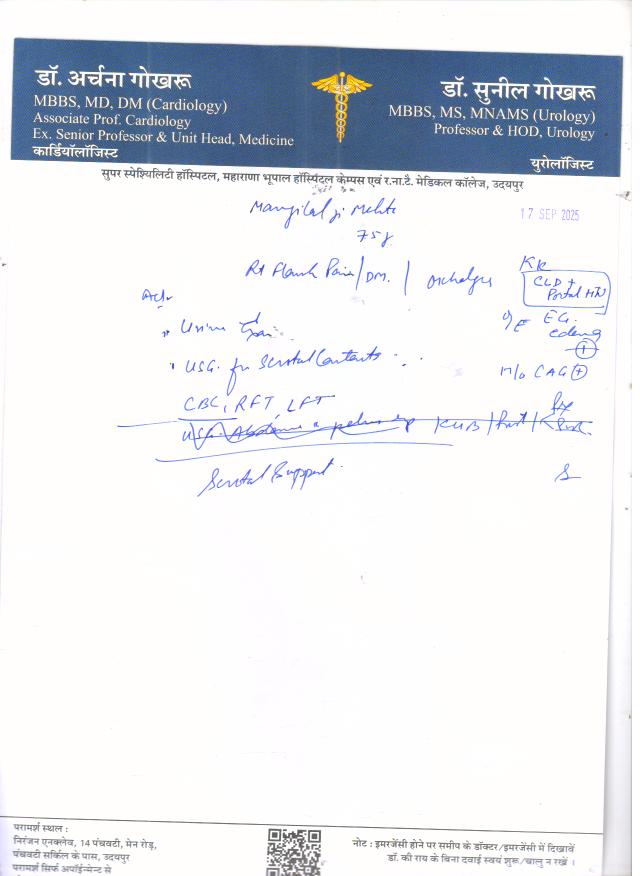 डॉ. अर्चना गोखरू
MBBS, MD, DM (Cardiology)
Associate Prof. Cardiology
Ex. Senior Professor & Unit Head, Medicine
कार्डियॉलॉजिस्ट
डॉ. सुनील गोखरू
MBBS, MS, MNAMS (Urology)
Professor & HOD, Urology
युरोलॉजिस्ट
सुपर स्पेश्यिलिटी हॉस्पिटल, महाराणा भूपाल हॉस्पिटल केम्पस एवं र.ना.टै. मेडिकल कॉलेज, उदयपुर
Mangilal ji Mehta
17 SEP 2025
75y
Rt Flank Pain / DM. /
CLD +
Portal HTN
Adv
O/E
edema
+
Urine
USG. for Scrotal Contents
H/o CAG +
CBC, RFT, LFT
USG. Abdomen & pelvis KUB /
Scrotal Support
परामर्श स्थल :
निरंजन एनक्लेव, 14 पंचवटी, मेन रोड़,
पंचवटी सर्किल के पास, उदयपुर
परामर्श सिर्फ अपॉईन्मेन्ट से
नोट : इमरजेंसी होने पर समीप के डॉक्टर/इमरजेंसी में दिखावें
डॉ. की राय के बिना दवाई स्वयं शुरू/चालु न रखें ।